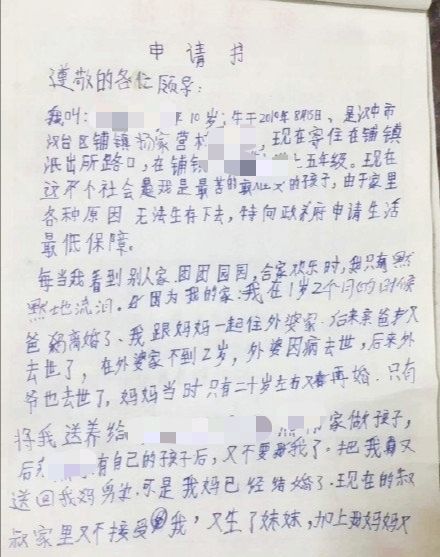 申请书
尊敬的各位领导:
我叫: 年10岁;生于2010年8月15日、是汉中市
汉台区铺镇杨家营村 ,现在寄住在铺镇
派出所路口,在铺镇 上五年级。现在
这个社会 我是最苦的 的孩子,由于家里
各种原因 无法生存下去,特向政府申请生活
最低保障。
每当我看到别人家团团圆圆,合家欢乐时,我只有默
默地流泪。因为我的家:我在1岁2个月的时候
爸妈离婚了、我跟妈妈一起住外婆家.后来亲爸爸又
去世了,在外婆家不到2岁,外婆因病去世,后来外
爷也去世了,妈妈当时只有二十岁左右又 再婚.只有
将我送养给 家做孩子,
后来 有自己的孩子后,又不要我了.把我又
送回我妈身边.可是我妈已经结婚了.现在的叔
叔家里又不接受我,又生了妹妹,加上 妈妈又